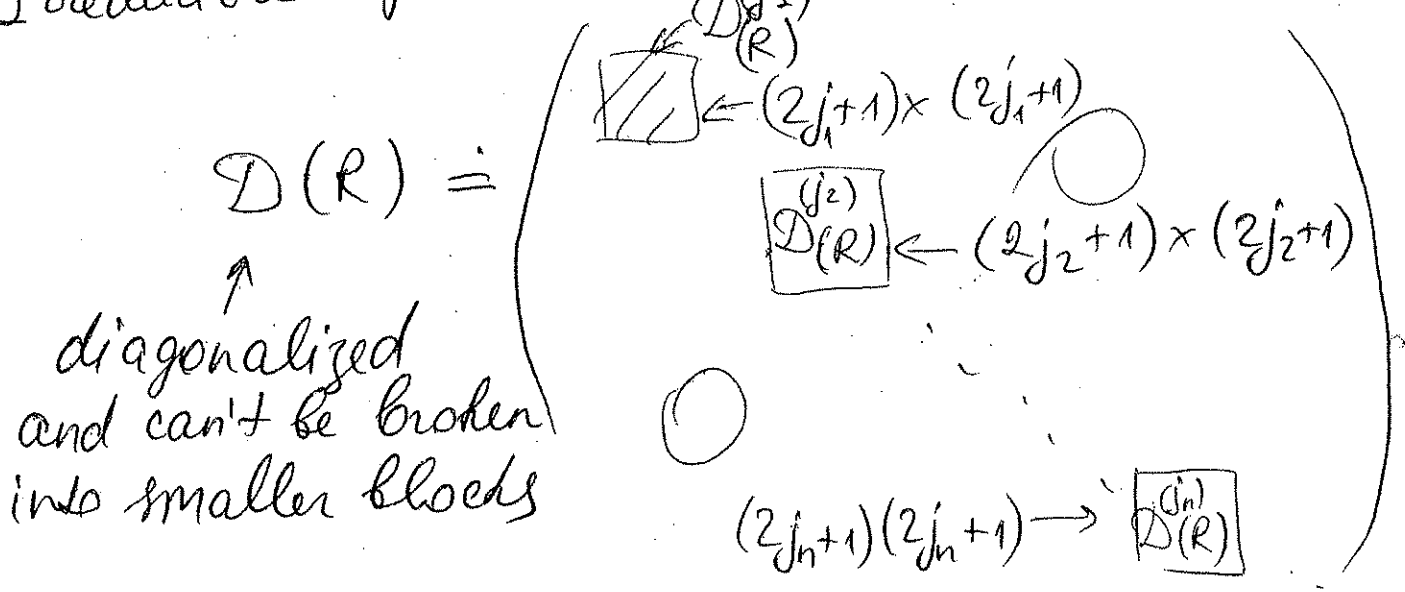 D^(j_1)(R)
← (2j_1+1) × (2j_1+1)
D(R) ≐
D^(j_2)(R) ← (2j_2+1) × (2j_2+1)
↑
diagonalized
and can't be broken
into smaller blocks
(2j_n+1)(2j_n+1) → D^(j_n)(R)